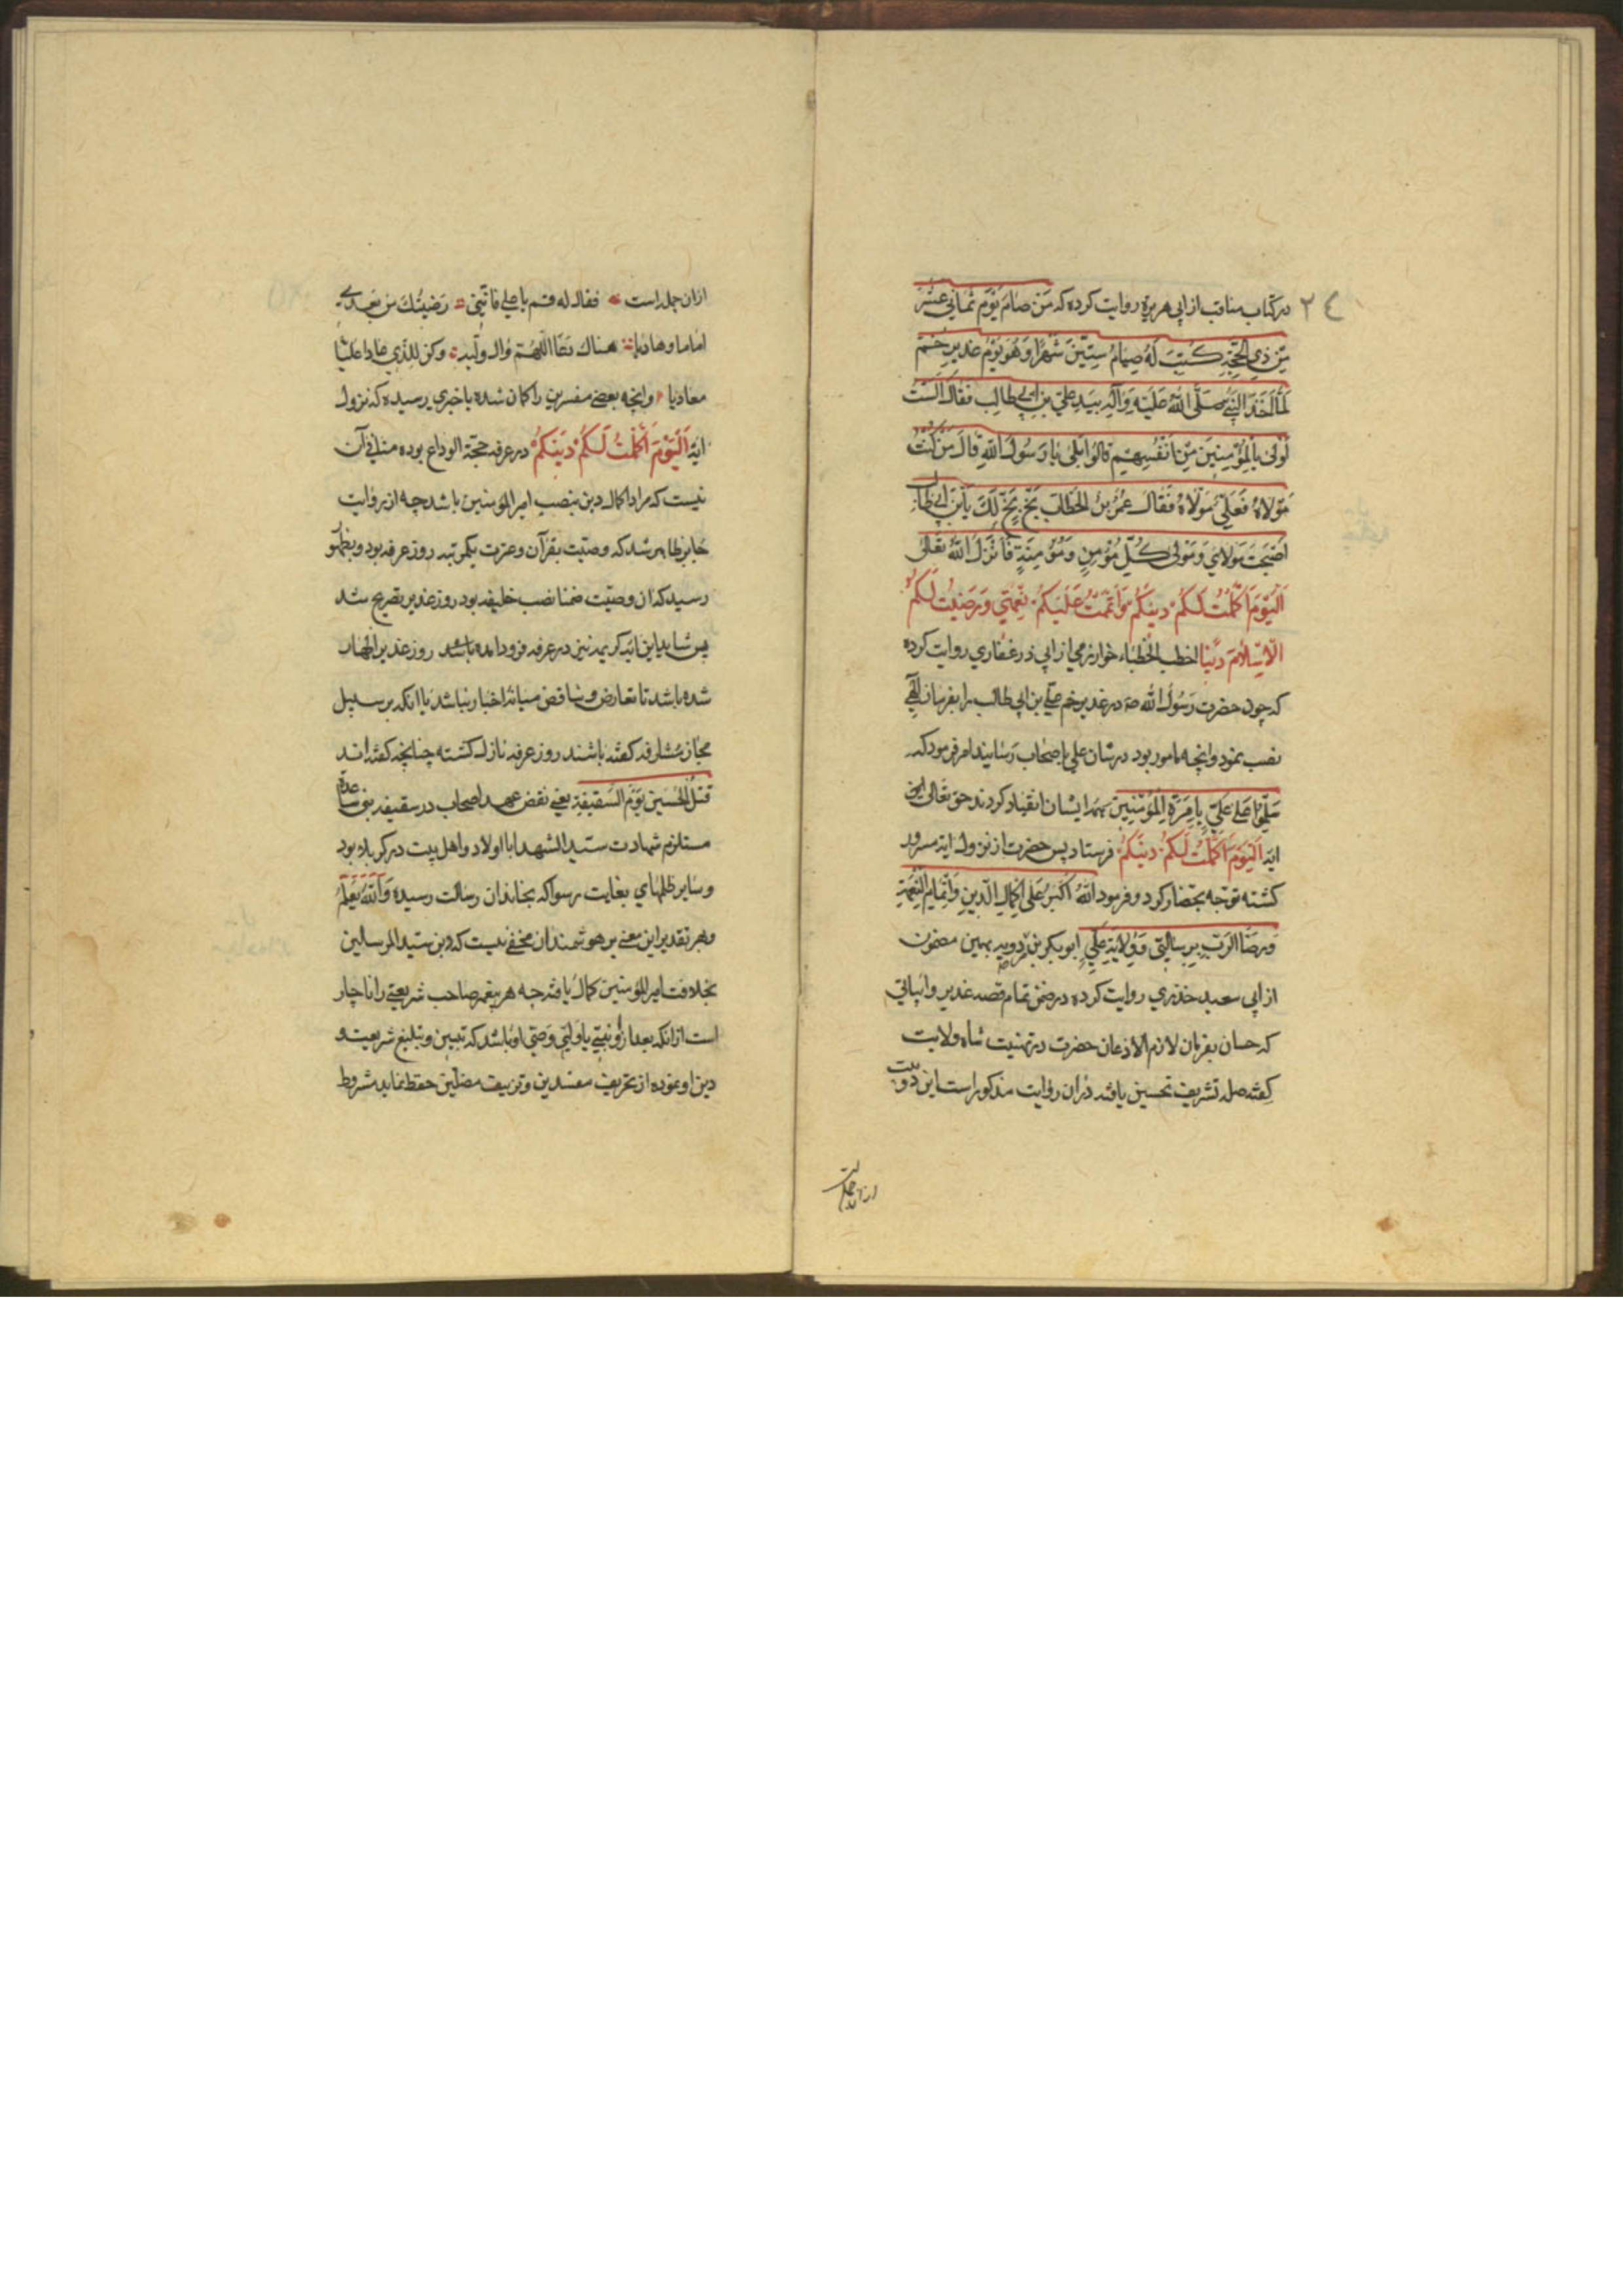 ٢٤
در کتاب مناقب از ابی هریرة روایت کرده که مَنْ صامَ یَوْمَ ثَمانِی عَشَرَ
مِنْ ذِی الحِجَّةِ کُتِبَ لَهُ صِیامُ سِتّینَ شَهْرًا وَ هُوَ یَوْمُ غدیرِ خُمّ
لَمّا اَخَذَ النَّبِیُّ صَلَّی اللّهُ عَلَیْهِ وَ آلِهِ بِیَدِ عَلِیِّ بْنِ اَبی طالِب فَقالَ اَلَسْتُ
اَوْلی بِالمُؤمِنینَ مِنْ اَنْفُسِهِمْ قالُوا بَلی یا رَسُولَ اللّهِ قالَ مَنْ کُنْتُ
مَوْلاهُ فَعَلِیٌّ مَوْلاهُ فَقالَ عُمَرُ بْنُ الخَطّابِ بَخٍّ بَخٍّ لَکَ یَابْنَ اَبی طالِب
اَصْبَحْتَ مَولایَ وَ مَوْلی کُلِّ مُؤْمِنٍ وَ مُؤْمِنَةٍ فَاَنْزَلَ اللّهُ تَعالی
اَلْیَوْمَ اَکْمَلْتُ لَکُمْ دینَکُمْ وَ اَتْمَمْتُ عَلَیْکُمْ نِعْمَتی وَ رَضیتُ لَکُمُ
الاِسْلامَ دینًا اخطب الخطباء خوارزمی از ابی ذر غفاری روایت کرده
که چون حضرت رَسُول اللّه صه در غدیر خم علی بن ابی طالب را بفرمان الهی
نصب نمود و انچه مامور بود در شان علی باصحاب رسانید امر فرمود که
سَلِّمُوا عَلی عَلِیٍّ بِاِمْرَةِ المُؤْمِنینَ همه ایشان انقیاد کردند حق تعالی این
ایه اَلْیَوْمَ اَکْمَلْتُ لَکُمْ دینَکُمْ فرستاد پس حضرت از نزول ایه مسرور
کشته توجه بحضار کرد و فرمود اَللّهُ اَکْبَرُ عَلی اِکْمالِ الدّینِ وَ اِتْمامِ النِّعْمَةِ
وَ رِضَا الرَّبِّ بِرِسالَتی وَ وِلایَةِ عَلِیٍّ ابو بکر بن مردویه بهمین مضمون
از ابی سعید خدری روایت کرده در ضمن تمام قصه غدیر و ابیاتی
که حسان بفرمان لازم الاذعان حضرت در تهنیت شاه ولایت
کفته صله تشریف تحسین یافته دران روایت مذکور است این دو بیت
ازان جمله است
ازان جمله است فقال له قم یا علی فانّنی رَضیتُکَ مِن بَعدی
اماما و هادیا هناک دَعا اللّهُمَّ وال ولیّه وکن للذی عادا علیّا
معادیا و انچه بعضی مفسرین را کمان شده یا خبری رسیده که نزول
ایه اَلْیَوْمَ اَکْمَلْتُ لَکُمْ دینَکُمْ در عرفه حجّة الوداع بوده منافی آن
نیست که مراد اکمال دین بنصب امیر المؤمنین باشد چه از روایت
جابر ظاهر شد که وصیّت بقرآن و عترت یکمرتبه روز عرفه بود و بظهور
رسید که ان وصیّت ضمنا نصب خلیفه بود روز غدیر تصریح شد
پس شاید این ایه کریمه نیز در عرفه فرود امده باشد روز غدیر اظهار
شده باشد تا تعارض و تناقض میانهٔ اخبار نباشد یا انکه بر سبیل
مجاز مشارفه کفته باشند روز عرفه نازل کشته چنانچه کفته اند
قتل الحُسَین یَوْمَ السَّقیفَةِ یعنی نقض عهد اصحاب در سقیفه بنی ساعده
مستلزم شهادت سیّد الشهدا با اولاد و اهل بیت در کربلا بود
و سایر ظلمهای بغایت رسوا که بخاندان رسالت رسیده وَ اللّهُ یَعْلَمُ
و بهر تقدیر این معنی بر هوشمندان مخفی نیست که دین سیّد المرسلین
بخلافت امیر المؤمنین کمال یافته چه هر پیغمبر صاحب شریعتی را ناچار
است از انکه بعد از او نبیّی یا ولیّی وصیّ او باشد که تبیین و تبلیغ شریعت و
دین او نموده از تحریف مفسدین و تزییف مضلّین حفظ نماید مشروط